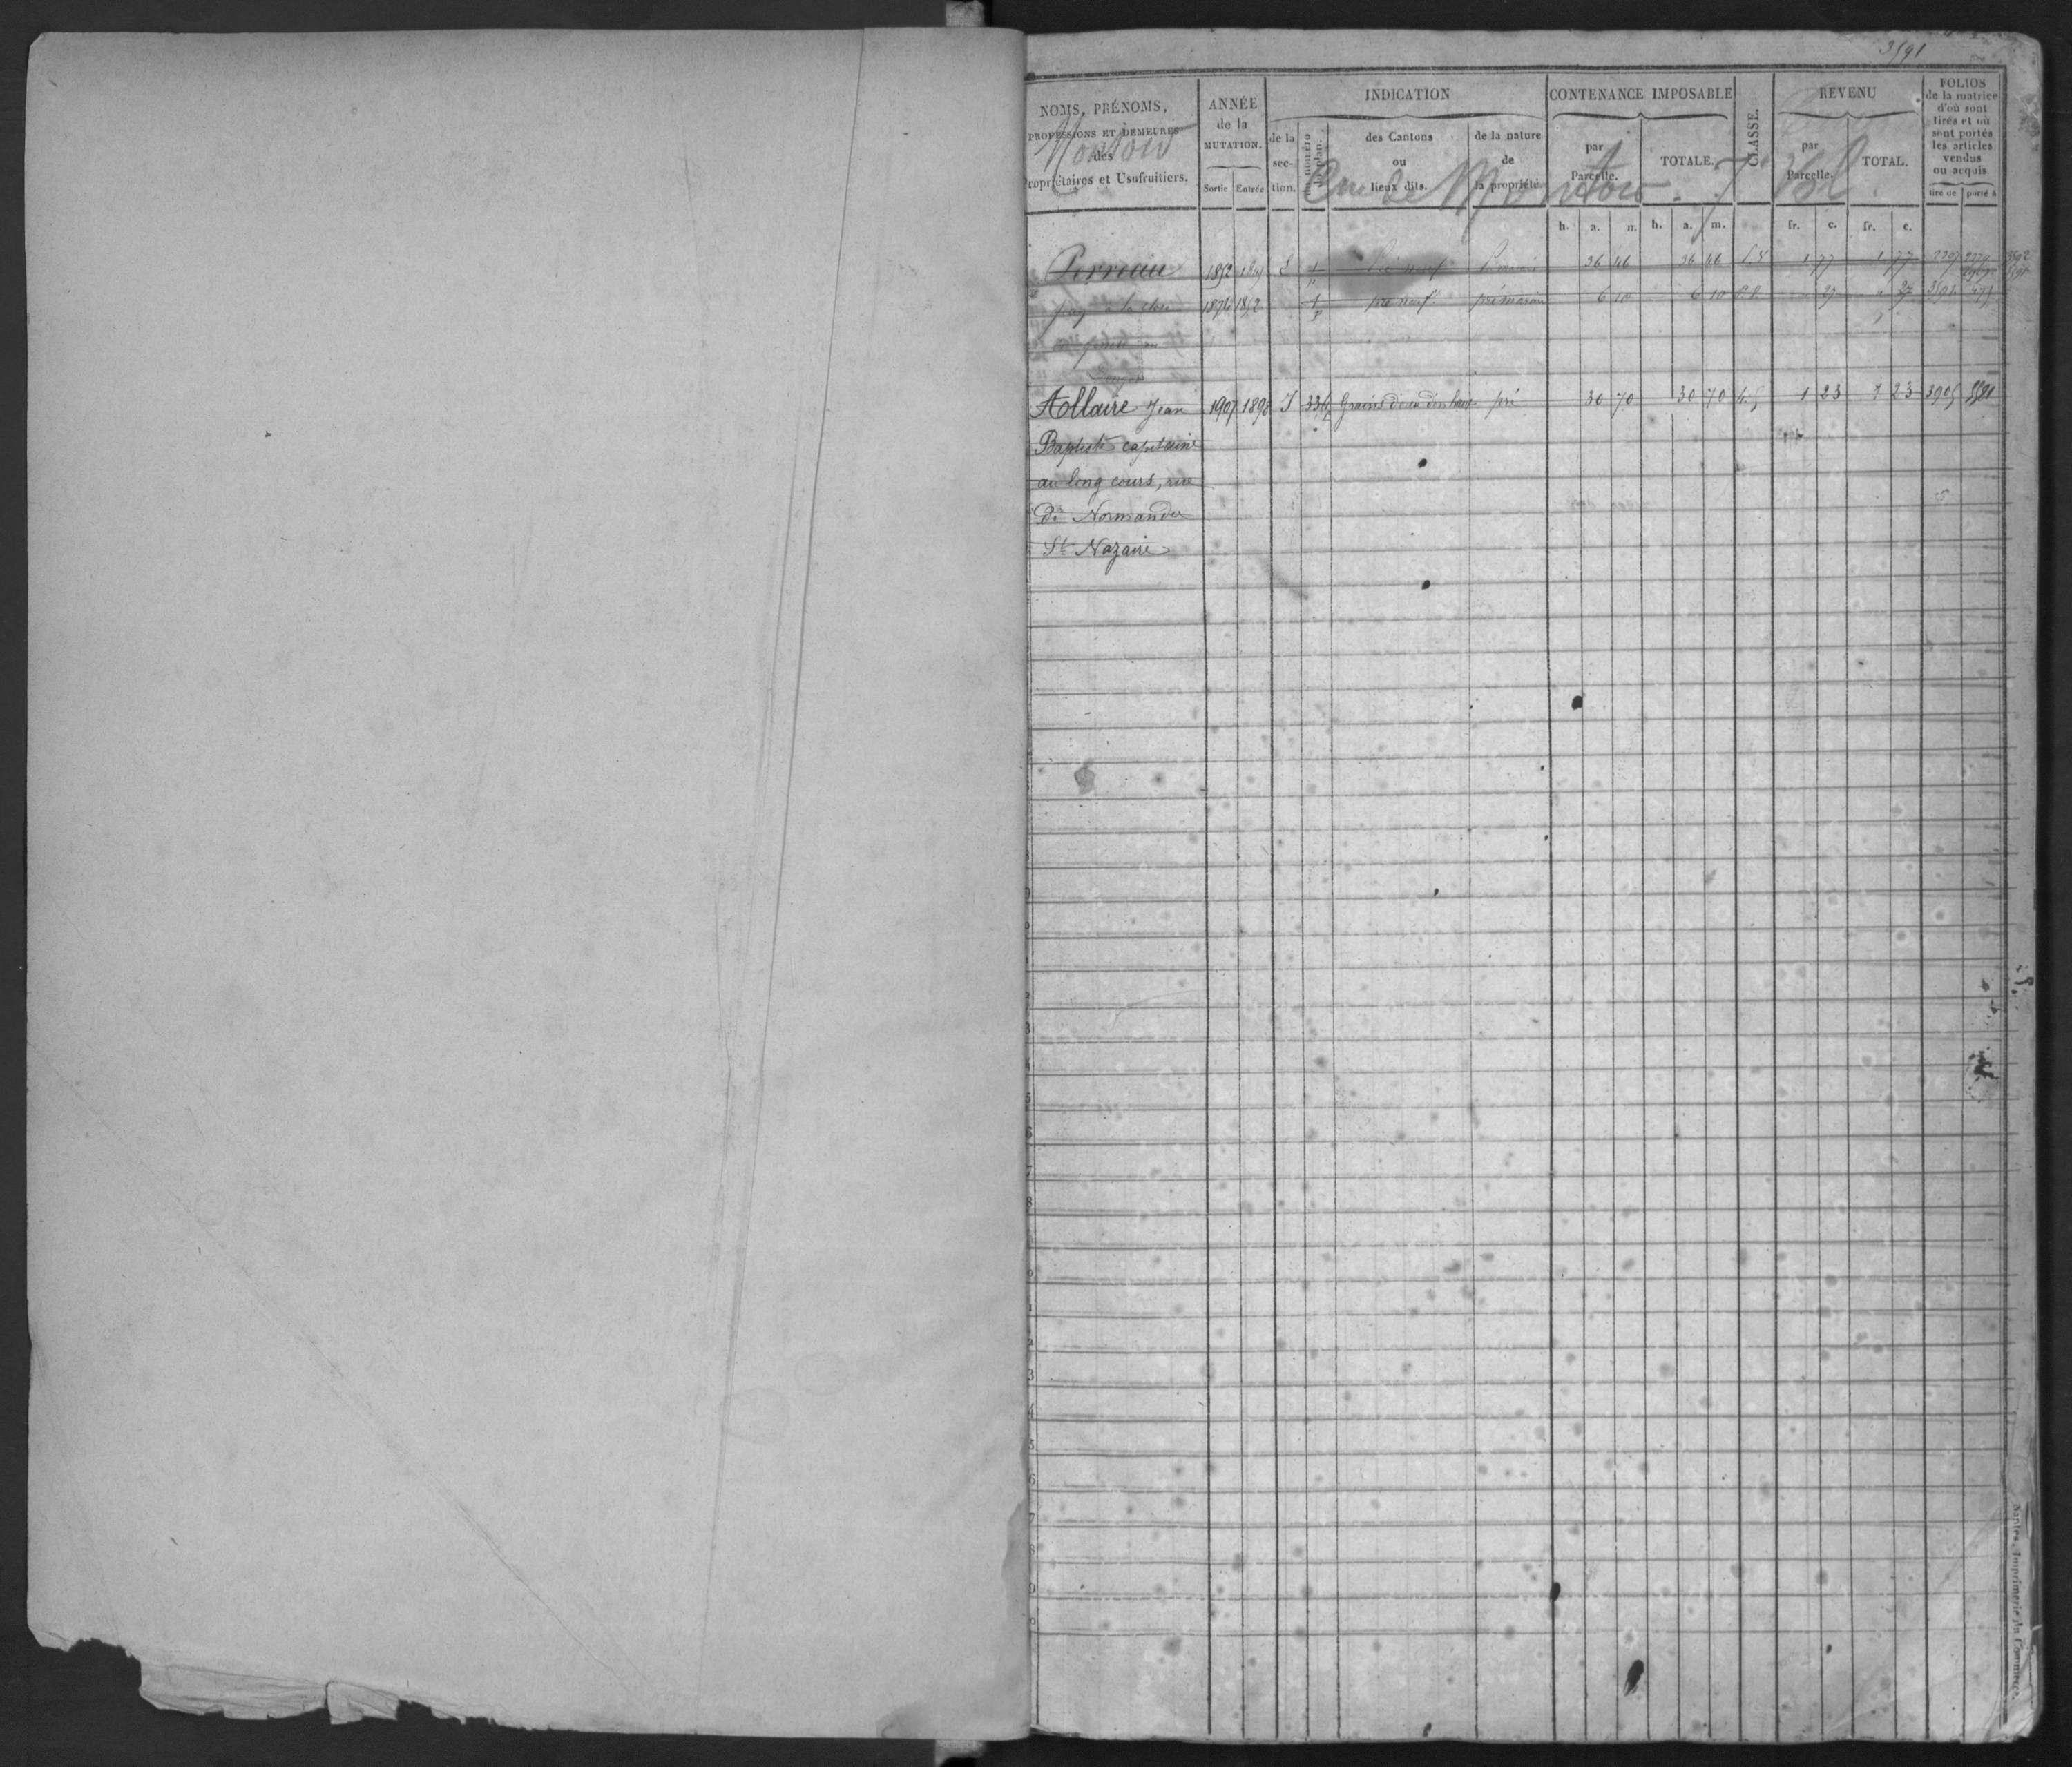 3591
NOMS, PRÉNOMS, PROFESSIONS ET DEMEURES des Propriétaires et Usufruitiers.
ANNÉE de la MUTATION.
Sortie Entrée
INDICATION
de la section.
du numéro du plan.
des Cantons ou lieux dits.
de la nature de la propriété.
CONTENANCE IMPOSABLE
par Parcelle.
TOTALE.
CLASSE.
REVENU
par Parcelle.
TOTAL.
FOLIOS de la matrice d'où sont tirés et où sont portés les articles vendus ou acquis
tiré de porté à
Montoir
de Montoir 7e Vol.
h. a. m. h. a. m. fr. c. fr. c.
Perreau 36 46 36 46 1 77 1 77
1874 1872 1 pré neuf pré marais 6 10 6 10 27 27
Allaire Jean 1907 1898 J 334 pré 30 70 30 70 4.5 1 23 1 23 3905
Baptiste capitaine
au long cours, rue
de Normandie
St Nazaire
Nantes, Imprimerie du Commerce.